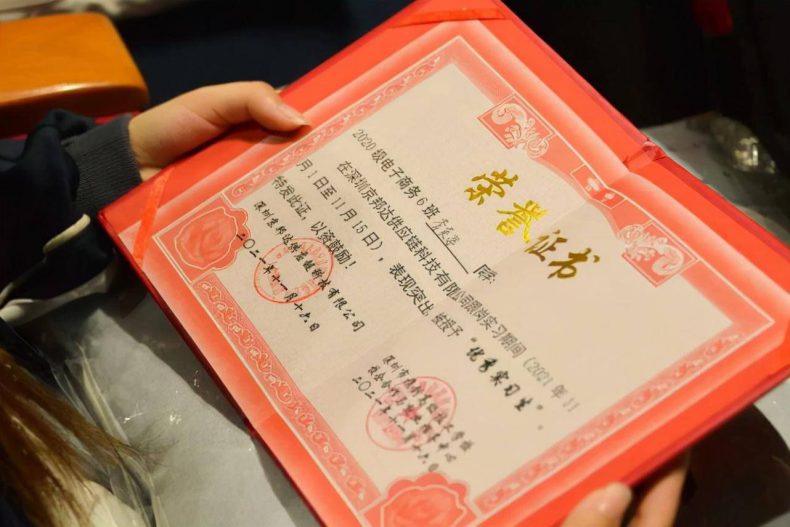 荣誉证书
2020级电子商务6班 同学：
在深圳京邦达供应链科技有限公司跟岗实习期间（2021年11
月1日至11月15日），表现突出 故授予 “优秀实习生”。
特发此证，以资鼓励！
深圳京邦达供应链科技有限公司
二〇二一年十一月十六日
二〇二一年十一月十六日